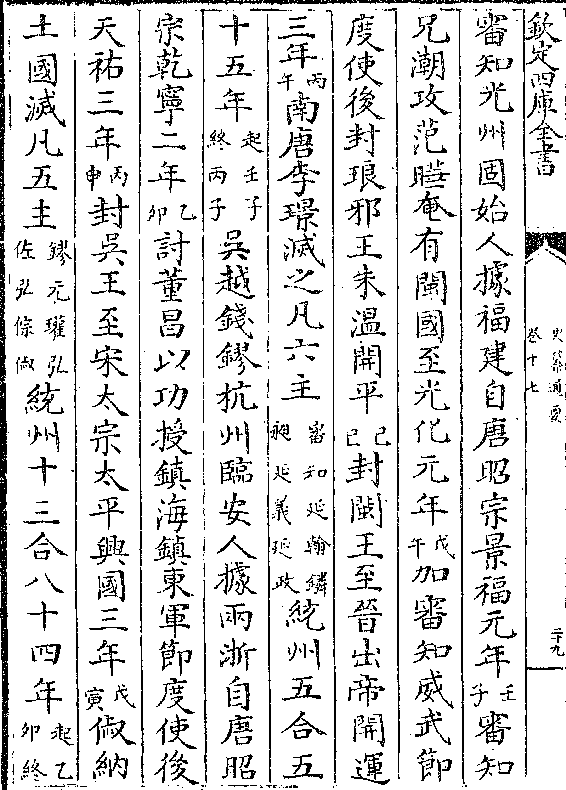 欽定四庫全書
史纂通要
卷十七
二十九
審知光州固始人據福建自唐昭宗景福元年壬子審知
兄潮攻范暉奄有閩國至光化元年戊午加審知威武節
度使後封琅邪王朱溫開平己巳封閩王至晉出帝開運
三年丙午南唐李璟滅之凡六主審知延翰鏻昶延義延政統州五合五
十五年起壬子終丙子吳越錢鏐杭州臨安人據兩浙自唐昭
宗乾寧二年乙卯討董昌以功授鎮海鎮東軍節度使後
天祐三年丙申封吳王至宋太宗太平興國三年戊寅俶納
土國滅凡五主鏐元瓘弘佐弘倧俶統州十三合八十四年起乙卯終